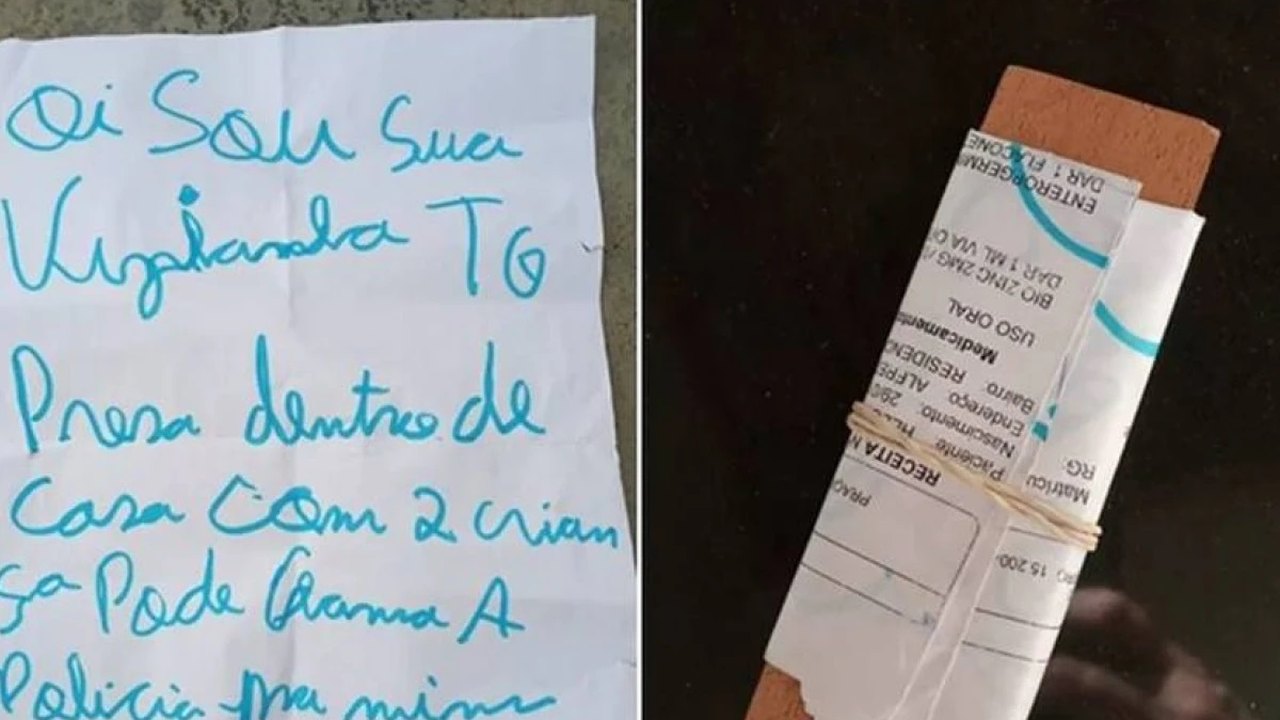 Oi Sou Sua
Vizianha TG
Presa dentro de
Casa Com 2 crian
ça Pode Chama A
Policia pra mim
ENTEROGERMI
DAR 1 FLACONE
BIO ZINC 2MG/
DAR 1 ML VIA O
USO ORAL
Medicament
Bairro: RESIDENC
Endereço: ALFRE
Nascimento: 29/0
Paciente: HE
RECEITA M
PRAÇ
RG:
Matrícu
15.200-